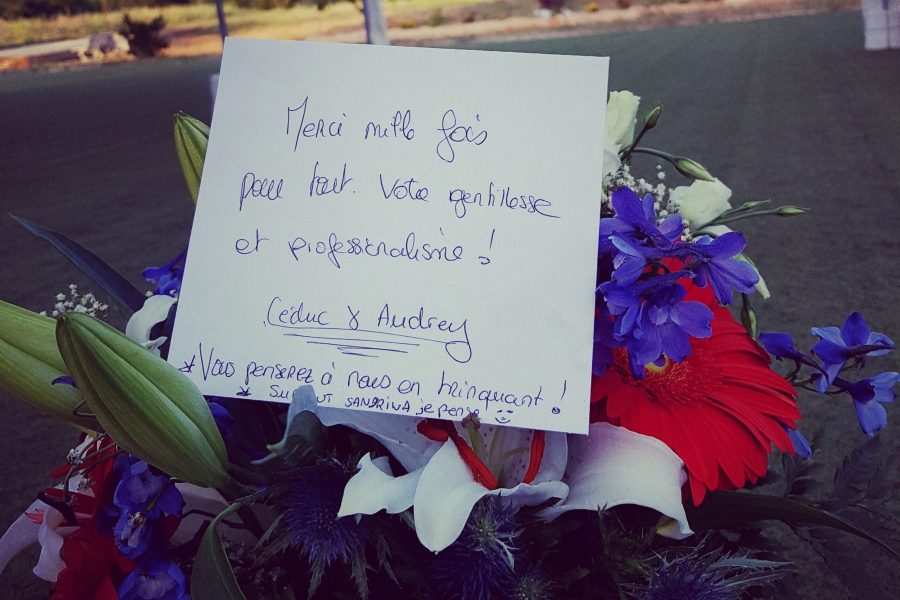 Merci mille fois
pour tout. Votre gentillesse
et professionalisme !
Céduc & Audrey
*Vous penserez à nous en trinquant !
* SURTOUT SANDRINA je pense